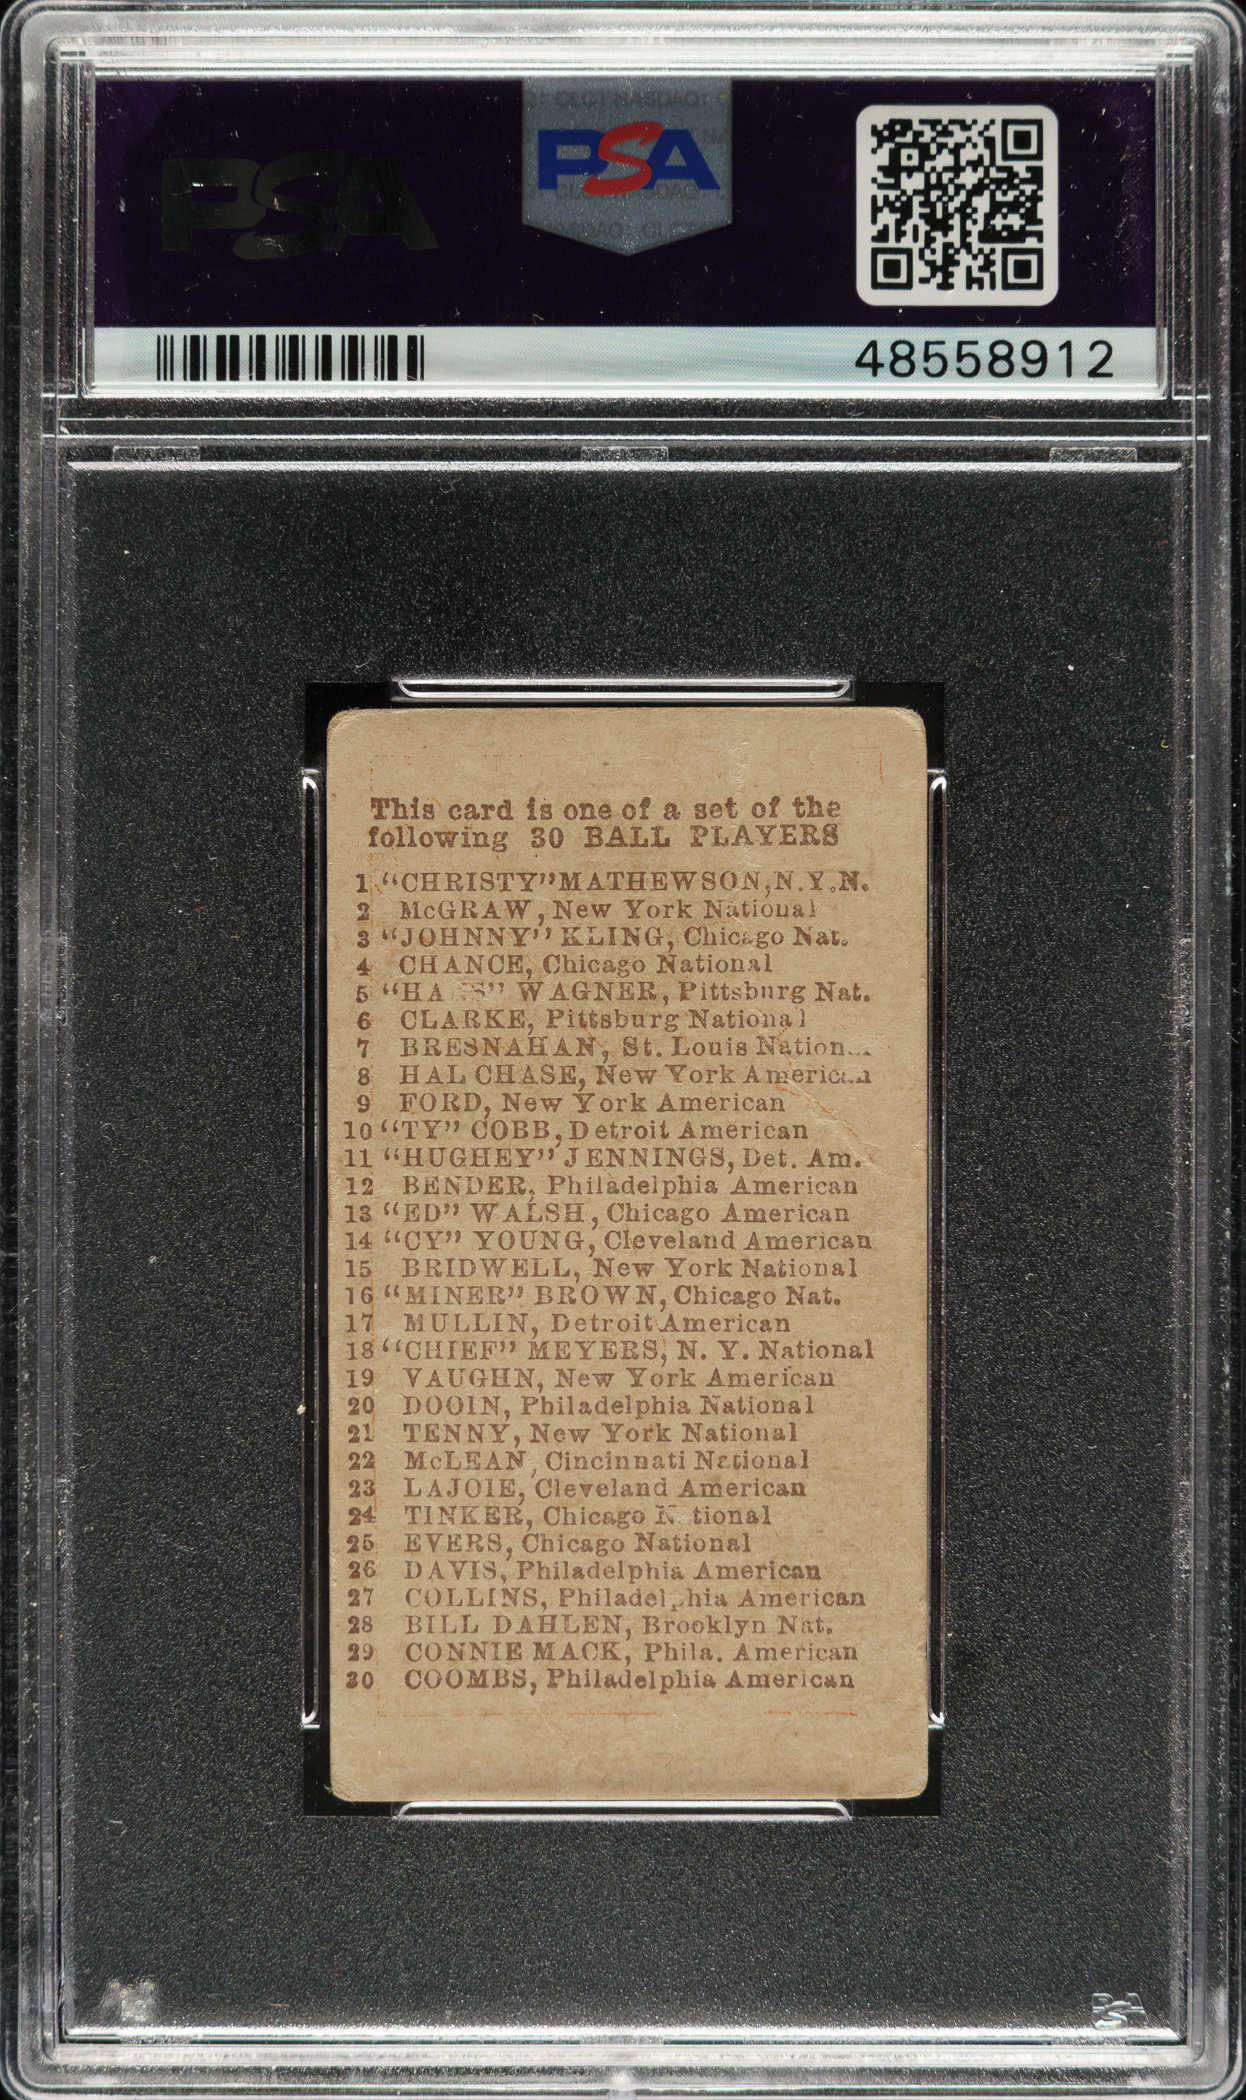 PSA
PSA
48558912
This card is one of a set of the
following 30 BALL PLAYERS
1 "CHRISTY" MATHEWSON, N.Y.N.
2 McGRAW, New York National
3 "JOHNNY" KLING, Chicago Nat.
4 CHANCE, Chicago National
5 "HANS" WAGNER, Pittsburg Nat.
6 CLARKE, Pittsburg National
7 BRESNAHAN, St. Louis National
8 HAL CHASE, New York American
9 FORD, New York American
10 "TY" COBB, Detroit American
11 "HUGHEY" JENNINGS, Det. Am.
12 BENDER, Philadelphia American
13 "ED" WALSH, Chicago American
14 "CY" YOUNG, Cleveland American
15 BRIDWELL, New York National
16 "MINER" BROWN, Chicago Nat.
17 MULLIN, Detroit American
18 "CHIEF" MEYERS, N. Y. National
19 VAUGHN, New York American
20 DOOIN, Philadelphia National
21 TENNY, New York National
22 McLEAN, Cincinnati National
23 LAJOIE, Cleveland American
24 TINKER, Chicago National
25 EVERS, Chicago National
26 DAVIS, Philadelphia American
27 COLLINS, Philadelphia American
28 BILL DAHLEN, Brooklyn Nat.
29 CONNIE MACK, Phila. American
30 COOMBS, Philadelphia American
PSA